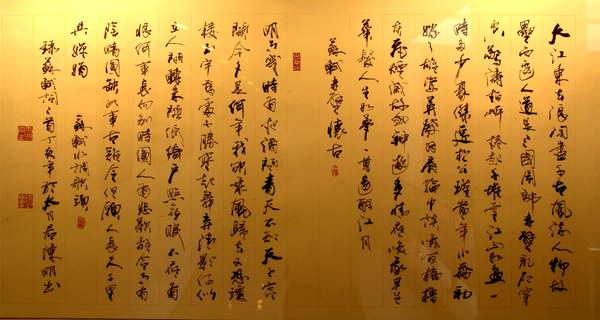 大江東去浪淘盡千古風流人物故
壘西邊人道是三國周郎赤壁亂石穿
空驚濤拍岸捲起千堆雪江山如畫一
時多少豪傑遙想公瑾當年小喬初
嫁了雄姿英發羽扇綸巾談笑間檣櫓
灰飛煙滅故國神遊多情應笑我早生
華髮人生如夢一尊還酹江月
蘇軾赤壁懷古
明月幾時有把酒問青天不知天上宮
闕今夕是何年我欲乘風歸去又恐瓊
樓玉宇高處不勝寒起舞弄清影何似
在人間轉朱閣低綺戶照無眠不應有
恨何事長向別時圓人有悲歡離合月有
陰晴圓缺此事古難全但願人長久千里
共嬋娟 蘇軾水調歌頭
錄蘇軾詞二首丁亥年於